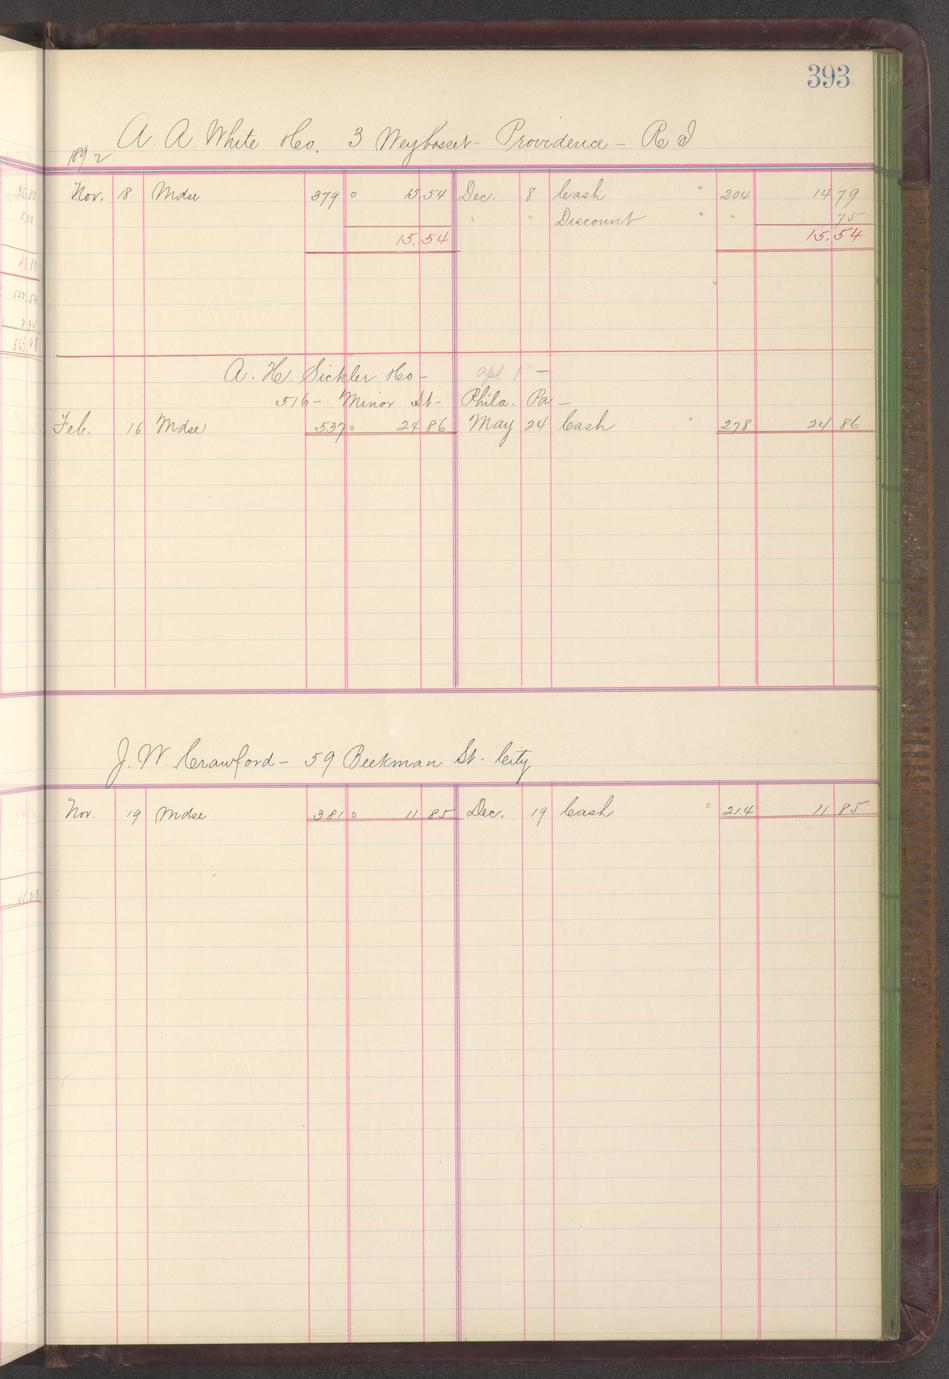 393
A. A. White & Co. 3 Weybosset - Providence - R I
1892
Nov. 18 Mdse 379 15.54 Dec. 8 Cash 204 14 79
" " Discount " " 75
15.54 15.54
A. H. Sickler & Co - Apl 1 -
516 - Minor St - Phila. Pa -
Feb. 16 Mdse 537 24 86 May 24 Cash 278 24 86
J. W. Crawford - 59 Beekman St. City
Nov. 19 Mdse 381 11 85 Dec. 19 Cash 214 11 85